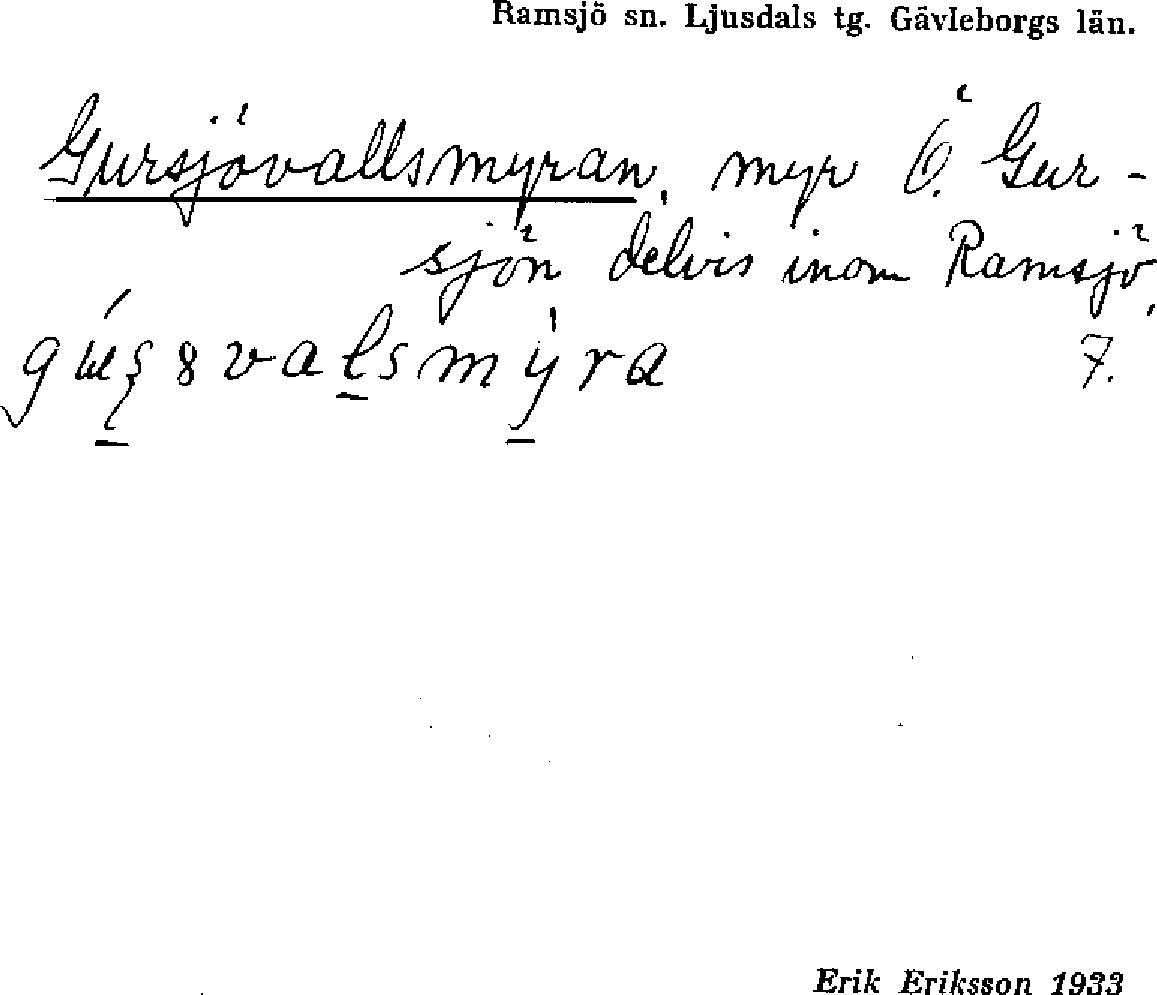 Ramsjö sn. Ljusdals tg. Gävleborgs län.
Gursjövallsmyran, myr Ö. Gur-
sjön delvis inom Ramsjö,
7.
Erik Eriksson 1933